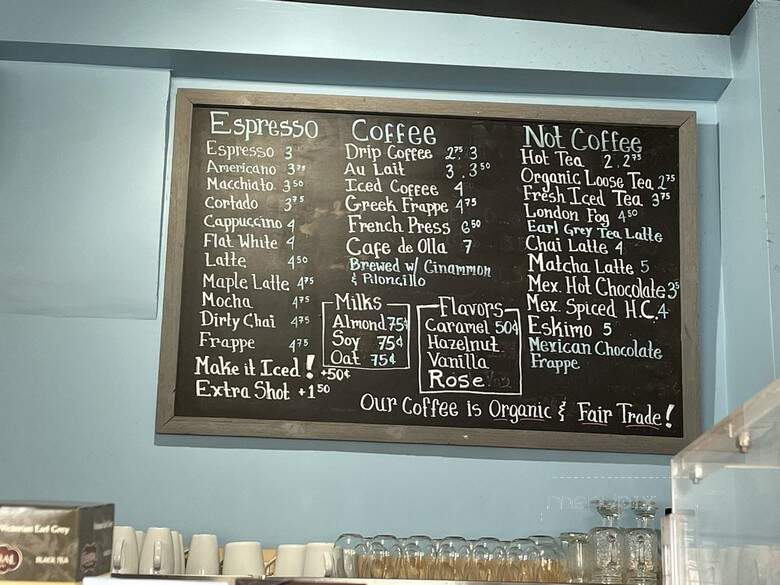 Espresso
Espresso 3
Americano 3⁷⁵
Macchiato 3⁵⁰
Cortado 3⁷⁵
Cappuccino 4
Flat White 4
Latte 4⁵⁰
Maple Latte 4⁷⁵
Mocha 4⁷⁵
Dirty Chai 4⁷⁵
Frappe 4⁷⁵
Make it Iced! +50¢
Extra Shot +1⁵⁰
Coffee
Drip Coffee 2⁷⁵ 3
Au Lait 3 . 3⁵⁰
Iced Coffee 4
Greek Frappe 4⁷⁵
French Press 6⁵⁰
Cafe de Olla 7
Brewed w/ Cinammon
& Piloncillo
Milks
Almond 75¢
Soy 75¢
Oat 75¢
Flavors
Caramel 50¢
Hazelnut
Vanilla
Rose
Not Coffee
Hot Tea 2 . 2⁷⁵
Organic Loose Tea 2⁷⁵
Fresh Iced Tea 3⁷⁵
London Fog 4⁵⁰
Earl Grey Tea Latte
Chai Latte 4
Matcha Latte 5
Mex. Hot Chocolate 3⁵
Mex. Spiced H.C. 4
Eskimo 5
Mexican Chocolate
Frappe
Our Coffee is Organic & Fair Trade!
Victorian Earl Grey
BLACK TEA
menupix